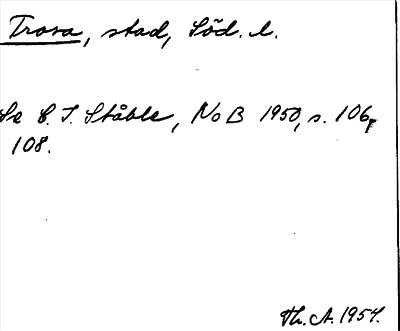 Trosa, stad, Söd. l.
Se C. I. Ståhle, NoB 1950, s. 106,
108.
Th. A. 1954.